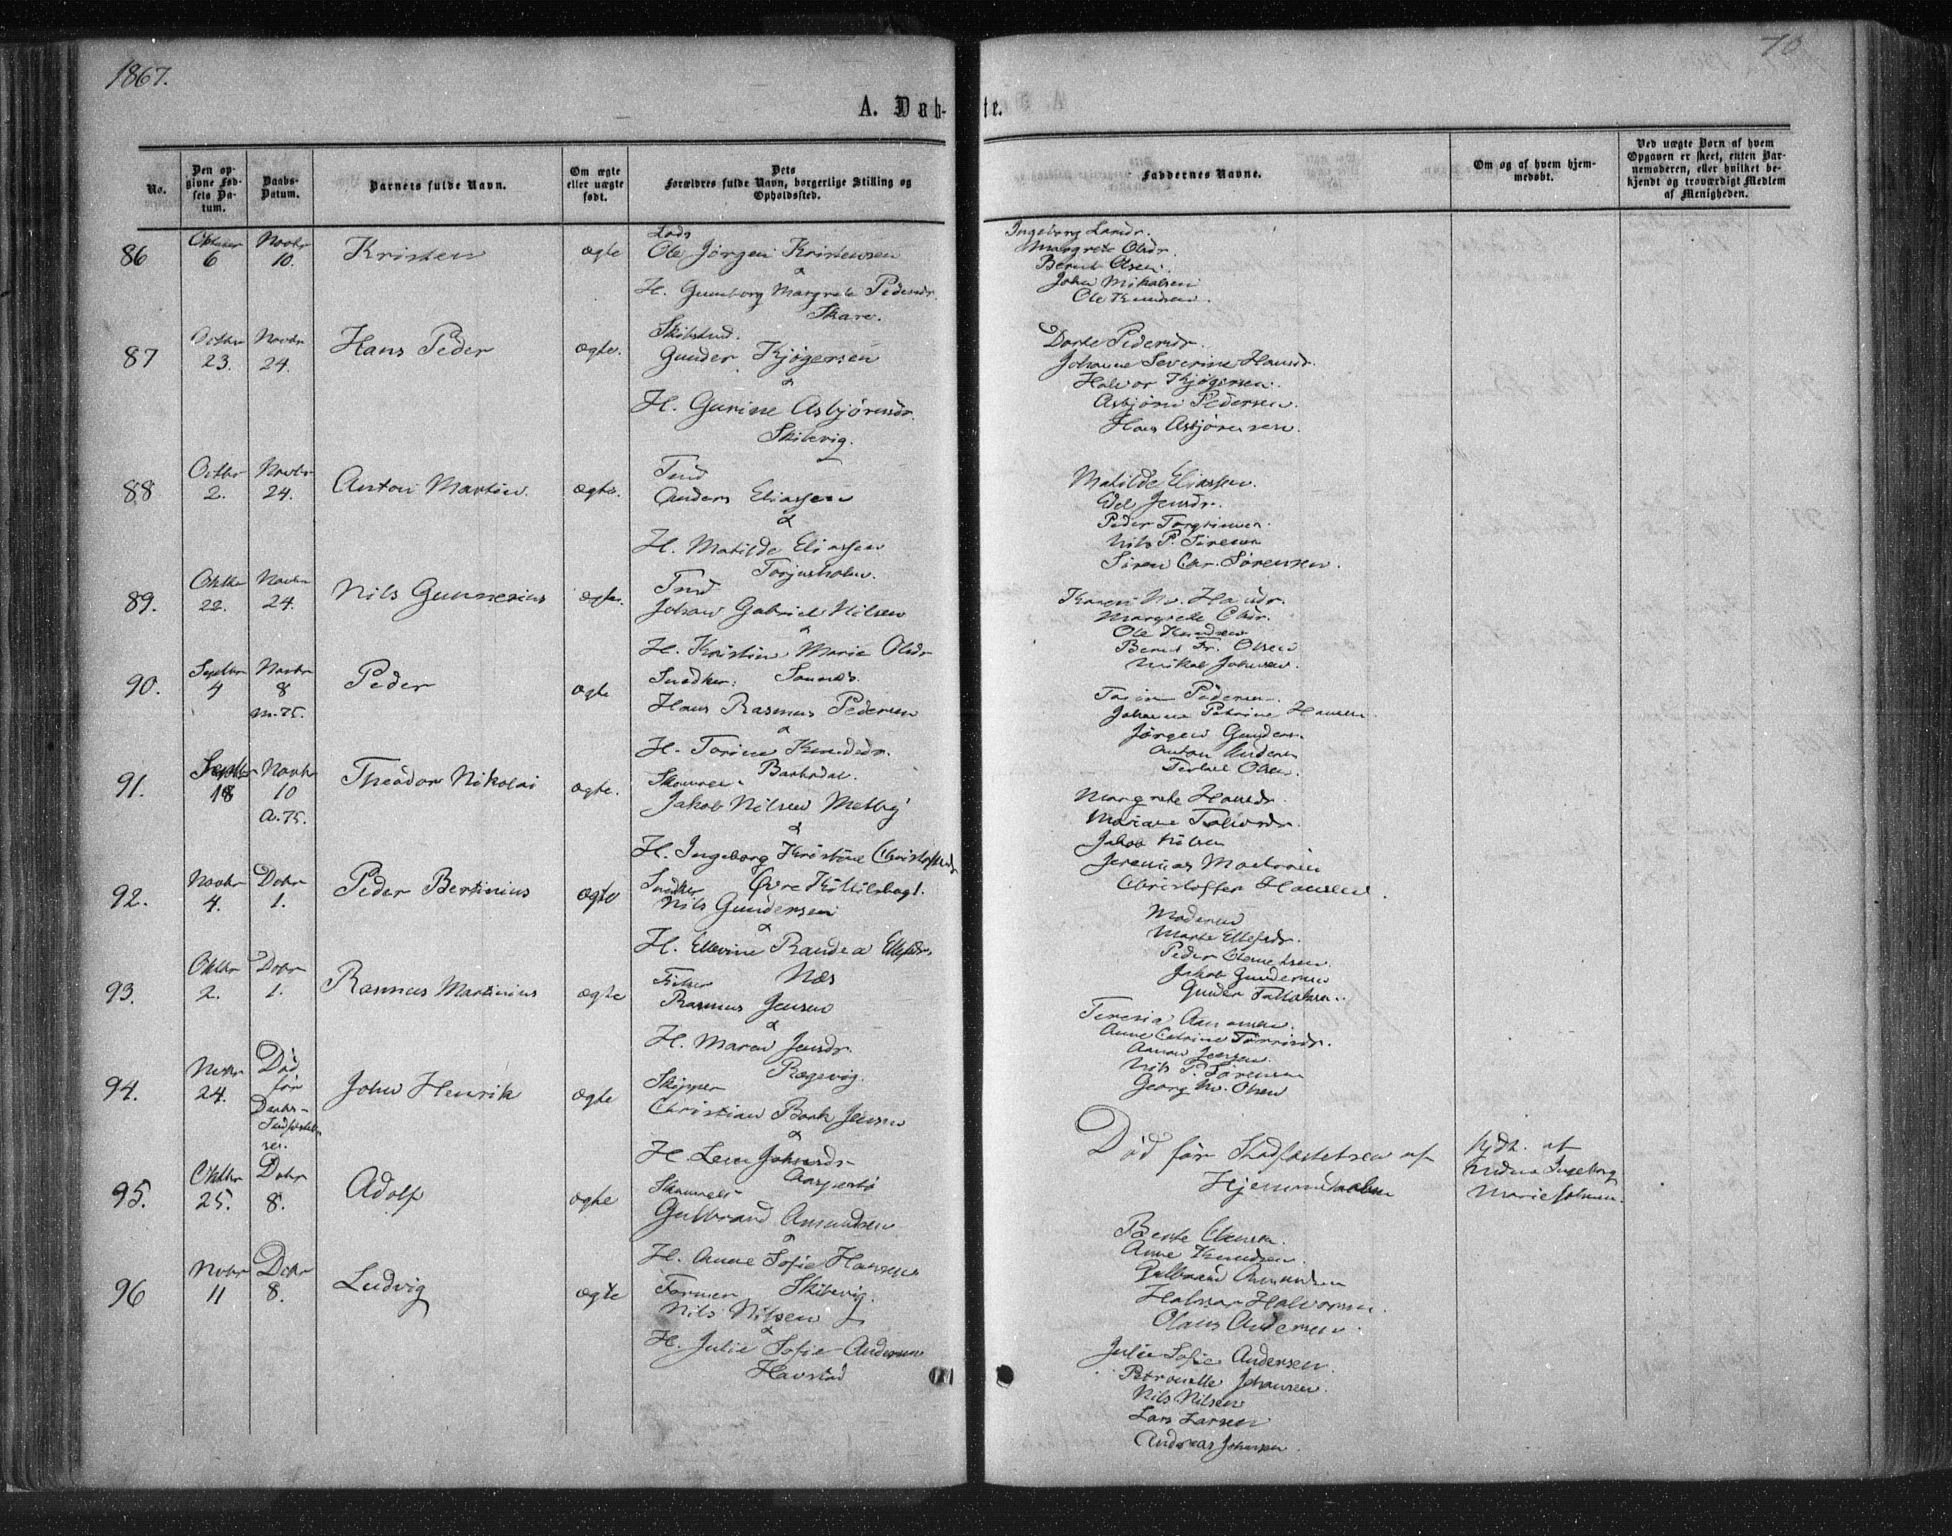 1867.
70
A. Døb-
te.
No.
Den op-
givne Fød-
sels Da-
tum.
Daabs-
Datum.
Barnets fulde Navn.
Om ægte
eller uægte
født.
Dets
Forældres fulde Navn, borgerlige Stilling og
Opholdssted.
Faddernes Navne.
Om og af hvem hjem-
medøbt.
Ved uægte Børn af hvem
Opgaven er skeet, enten Bar-
nemoderen, eller hvilket be-
kjendt og troværdigt Medlem
af Menigheden.
86
6
Novbr
10.
Kristen
ægte
Lods
Ole Jørgen Kristensen
&
H. Gunborg Margrete Pedersdr.
Skare.
Ingeborg Larsdr.
Margrete Olsdr.
Bernt Olsen.
John Mikalsen
Ole Knudsen.
87
Octbr
23.
Novbr
24.
Hans Peder
ægte.
Gunder Kjøgersen
&
H. Gurine Asbjørnsdr.
Skibevig.
Dorte Pedersdr.
Johanne Severine Hansdr.
Halvor Kjøgersen.
Asbjørn Pedersen.
Hans Asbjørnsen.
88
Octbr
2.
Novbr
24.
Anton Martin.
ægte.
Tmd
Anders Eliassen
&
H. Matilde Eliassen
Torjusholm.
Matilde Eliassen.
Edel Jensdr.
Peder
Nils P. Sørensen
Søren Chr. Sørensen.
89.
Oktbr
22.
Novbr
24.
Nils Gunnerius
ægte.
Tmd
Johan Gabriel Nilsen
&
H. Kristin Marie Olsdr
Karen M. Hansdr.
Margrete Olsdr.
Ole Knudsen
Bernt Fr. Olsen
Mikal Johnsen.
90.
Septbr
4
Novbr
8
m. 75.
Peder
ægte
Snedker.
Hans Rasmus Pedersen
&
H. Torine Knudsdr.
Barbodal.
Pedersen
Johanne Petrine Hansen.
Jørgen Gunders.
Anton Andersen
Terkel Olsen.
91.
Septbr
18
Novbr
10
a. 75.
Theodor Nikolai
ægte.
Jakob Nilsen Melby
&
H. Ingeborg Kristine Christoffersdr
Margrete Hansdr.
Mariane
Jakob Nilsen
Jeremias
Christoffer Hansen.
92.
Novbr
4.
Debr
1.
Peder Bertinius
ægte
Snedker
Nils Gundersen
&
H. Ellevine Randea Ellefsdr.
Næs
Moderen
Marte Ellefsdr.
Peder Clemetsen
Jakob Gundersen
Gunder
93.
Oktbr
2.
Debr
1.
Rasmus Martinius
ægte
Fisker
Rasmus Jensen
&
H. Maren Jensdr.
Rægevig.
Teresia Aanonsen.
Anne Catrine
Aanon Jensen.
Nils P. Sørensen
Georg M. Olsen
94.
Novbr
24.
Død
før
Daabs-
Stadfæstel-
sen.
John Henrik
ægte
Skipper
Christian Bork Jensen
&
H. Lene Johnsdr
Død før Stadfæstelsen af
Hjemmedaaben
Jydm. af
Marie Johnsen.
95.
Oktbr
25.
Debr
8.
Adolf
ægte
Gulbrand Amundsen
&
H. Anne Sofie Hansen
Skibevig.
Bente Clausen.
Anne Knudsen.
Gulbrand Amundsen
Halvor Halvorsen.
Olaus Andersen.
96
Novbr
11
Debr
8.
Ludvig
ægte
Former
Nils Nilsen
&
H. Julie Sofie Andersen
Havstad
Julie Sofie Andersen.
Petronelle Johansen.
Nils Nilsen
Lars Larsen
Andreas Johansen.